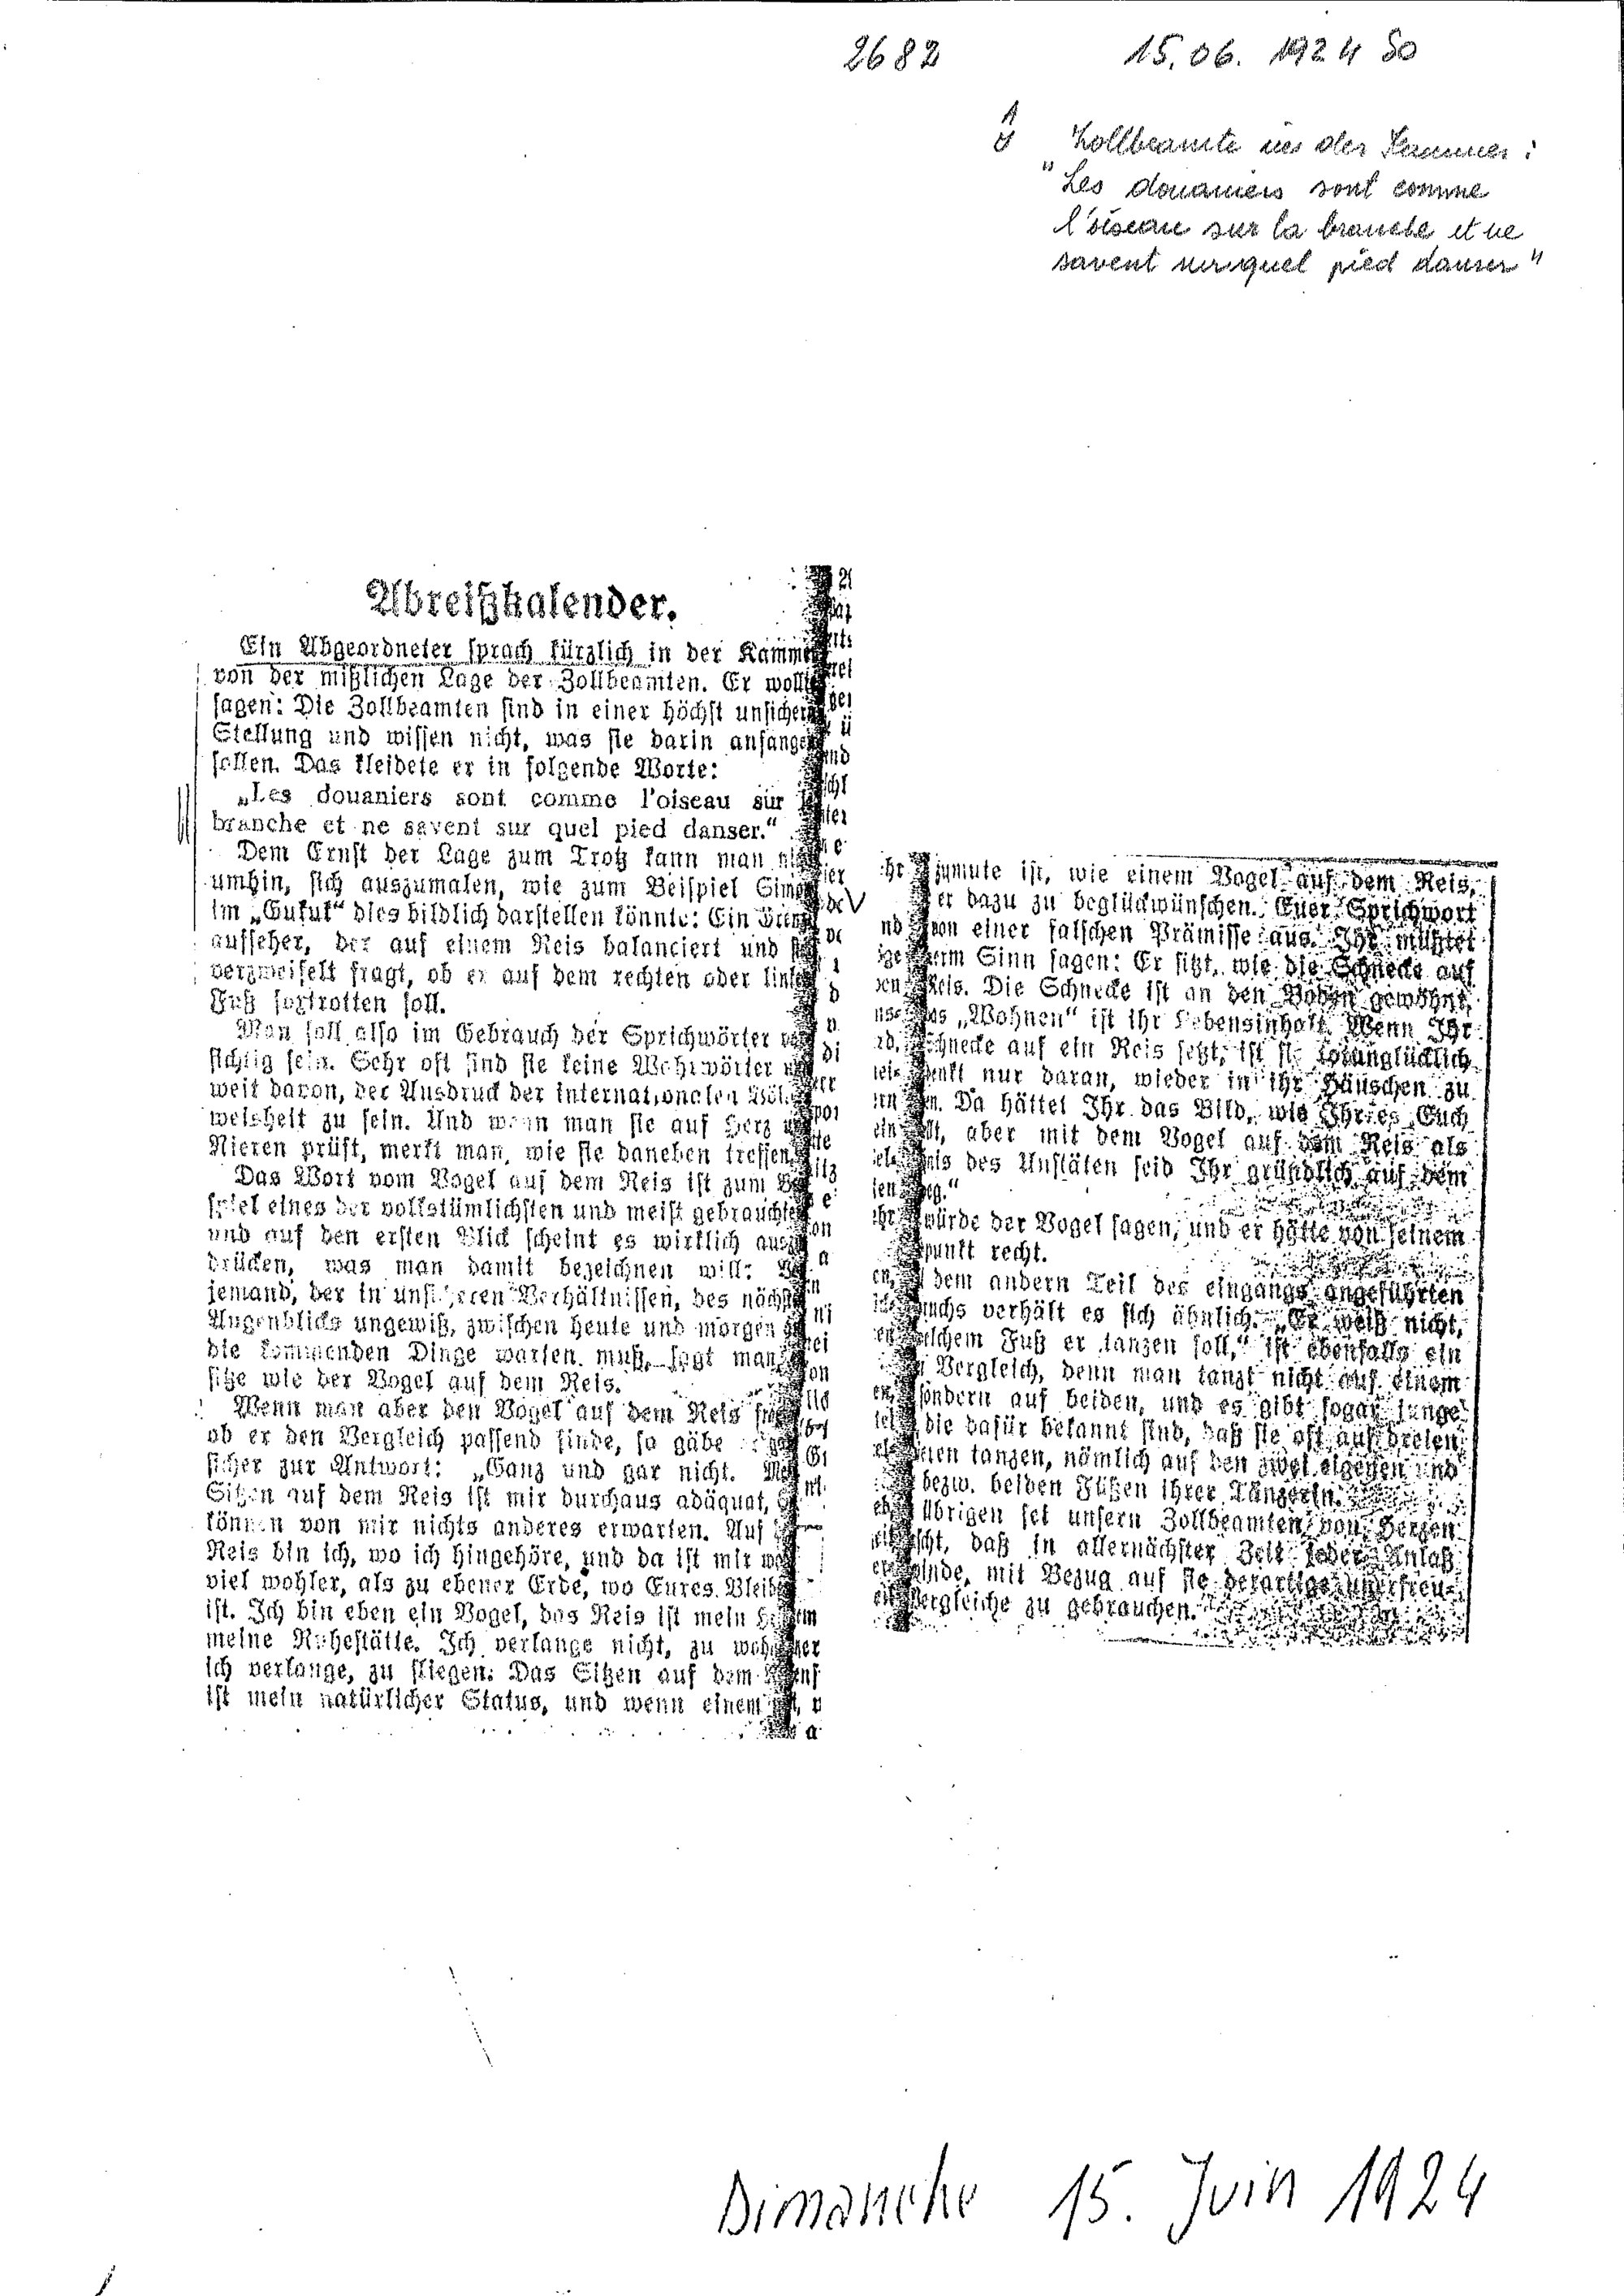 2682
15.06. 1924 So
Zollbeamte in der Kammer:
"Les douaniers sont comme
l'oiseau sur la branche et ne
savent sur quel pied danser"
Abreißkalender.
Ein Abgeordneter sprach kürzlich in der
von der mißlichen Lage der Zollbeamten. Er
sagen: Die Zollbeamten sind in einer höchst
Stellung und wissen nicht, was sie darin
sollen. Das kleidete er in folgende Worte:
„Les douaniers sont comme l'oiseau sur
branche et ne savent sur quel pied danser.“
Dem Ernst der Lage zum Trotz kann man
umhin, sich auszumalen, wie zum Beispiel
im „Gukuk“ dies bildlich darstellen könnte: Ein
aufseher, der auf einem Reis balanciert und
verzweifelt fragt, ob er auf dem rechten oder
Fuß foxtrotten soll.
Man soll also im Gebrauch der Sprichwörter
sichtig sein. Sehr oft sind sie keine Wahrwörter
weit davon, der Ausdruck der internationalen
weisheit zu sein. Und wenn man sie auf Herz
Nieren prüft, merkt man, wie sie daneben treffen.
Das Wort vom Vogel auf dem Reis ist zum
spiel eines der volkstümlichsten und meist
und auf den ersten Blick scheint es wirklich
drücken, was man damit bezeichnen will:
jemand, der in unsicheren Verhältnissen, des
Augenblicks ungewiß, zwischen heute und morgen
die kommenden Dinge warten muß, sagt man,
sitze wie der Vogel auf dem Reis.
Wenn man aber den Vogel auf dem Reis
ob er den Vergleich passend finde, so gäbe
sicher zur Antwort: „Ganz und gar nicht.
Sitzen auf dem Reis ist mir durchaus adäquat,
können von mir nichts anderes erwarten. Auf
Reis bin ich, wo ich hingehöre, und da ist mir
viel wohler, als zu ebener Erde, wo Eures
ist. Ich bin eben ein Vogel, das Reis ist mein
meine Ruhestätte. Ich verlange nicht, zu
ich verlange, zu fliegen. Das Sitzen auf dem
ist mein natürlicher Status, und wenn einem
zumute ist, wie einem Vogel auf dem Reis,
er dazu zu beglückwünschen. Euer Sprichwort
von einer falschen Prämisse aus. Ihr müßtet
Sinn sagen: Er sitzt, wie die Schnecke auf
Reis. Die Schnecke ist an den Boden gewöhnt,
„Wohnen“ ist ihr Lebensinhalt. Wenn Ihr
auf ein Reis setzt, ist sie totunglücklich
nur daran, wieder in ihr Häuschen zu
Da hättet Ihr das Bild, wie Ihr es Euch
aber mit dem Vogel auf dem Reis als
des Unstäten seid Ihr gründlich auf dem
würde der Vogel sagen, und er hätte von seinem
recht.
dem andern Teil des eingangs angeführten
verhält es sich ähnlich. „Er weiß nicht,
Fuß er tanzen soll,“ ist ebenfalls ein
Vergleich, denn man tanzt nicht auf einem
sondern auf beiden, und es gibt sogar junge
die dafür bekannt sind, daß sie oft auf dreien
tanzen, nämlich auf den zwei eigenen und
bezw. beiden Füßen ihrer Tänzerin.
Übrigen sei unsern Zollbeamten von Herzen
daß in allernächster Zeit jeder Anlaß
mit Bezug auf sie derartige unerfreu-
Vergleiche zu gebrauchen.
Dimanche 15. Juin 1924